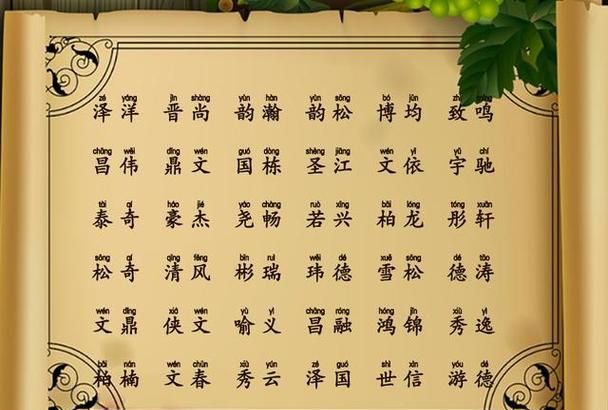 zé yáng jìn shàng yùn hàn yùn sōng bó jūn
泽洋 晋尚 韵瀚 韵松 博均 致鸣
chāng wěi dǐng wén guó dòng shèng jiāng wén yī yǔ chí
昌伟 鼎文 国栋 圣江 文依 宇驰
tài qí háo jié yáo chàng ruò xíng bǎi lóng tóng xuān
泰奇 豪杰 尧畅 若兴 柏龙 彤轩
sōng qí qīng fēng bīn ruì wěi dé xuě sōng dé tāo
松奇 清风 彬瑞 玮德 雪松 德涛
wén dǐng xiá wén yù yì chāng róng hóng jǐn xiù yì
文鼎 侠文 喻义 昌融 鸿锦 秀逸
bǎi nán wén chūn xiù yún zé guó shì xìn yóu dé
柏楠 文春 秀云 泽国 世信 游德